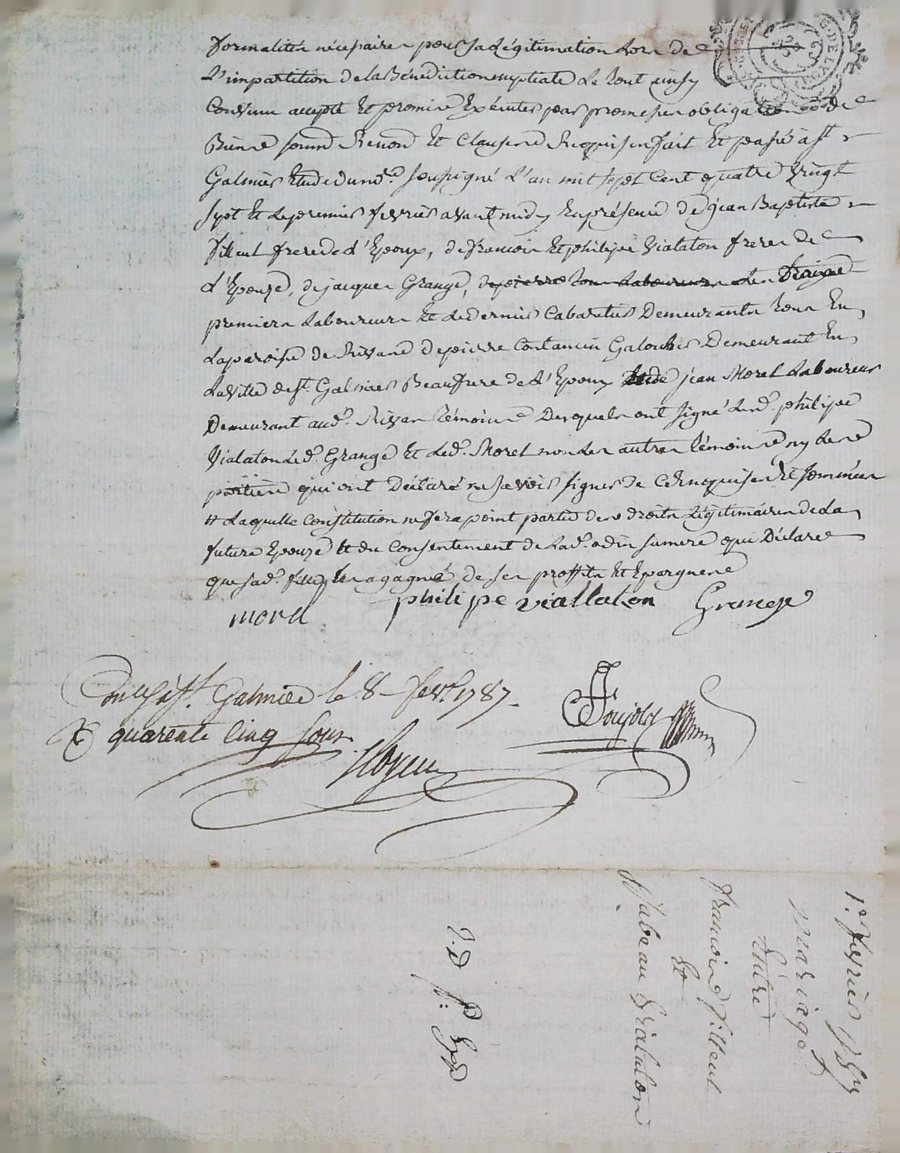 formalités nécessaires pour sa Légitimation Lors de
L'impartition de la Bénédiction nuptiale Le tout ainsy
Convenu accepté Et promis Exécuter par promesses obligations de
Biens soumn Renon Et Clauses Requises fait Et passé a St
Galmier Etude du no.re soussigné L'an mil sept Cent quatre vingt
sept Et Le premier fevrier avant midy En présence de jean Baptiste
frere de d'Epoux, de francois Et philipe Vialaton freres de
d'Epouze, de jacques Grange, de pierre
premiers Laboureurs Et Le dernier Cabaretier Demeurants tous En
La paroisse de Rivas de pierre Constancin Demeurant En
La ville de St. Galmier Beaufrere de d'Epoux jean Morel Laboureur
Demeurant aud. Rivas témoins Desquels ont signé Led. philipe
Vialaton Led. Grange Et Led. Morel non Les autres témoins ny Les
parties qui ont Déclaré ne savoir signer de Ce Requis Et sommés
# Laquelle Constitution ne sera point partie des droits Légitimaires de La
future Epouze Et du Consentement de Lad. odin sa mere qui Déclare
que sad. fille Les a gagné de ses proffits Et Epargnes
morel philipe viallaton Grange
Con. a St. Galmier le 8 fevr. 1787.
R quarente cinq sous
1.er fevrier 1787
mariage
Entre
francois
Et
Isabeau Vialaton